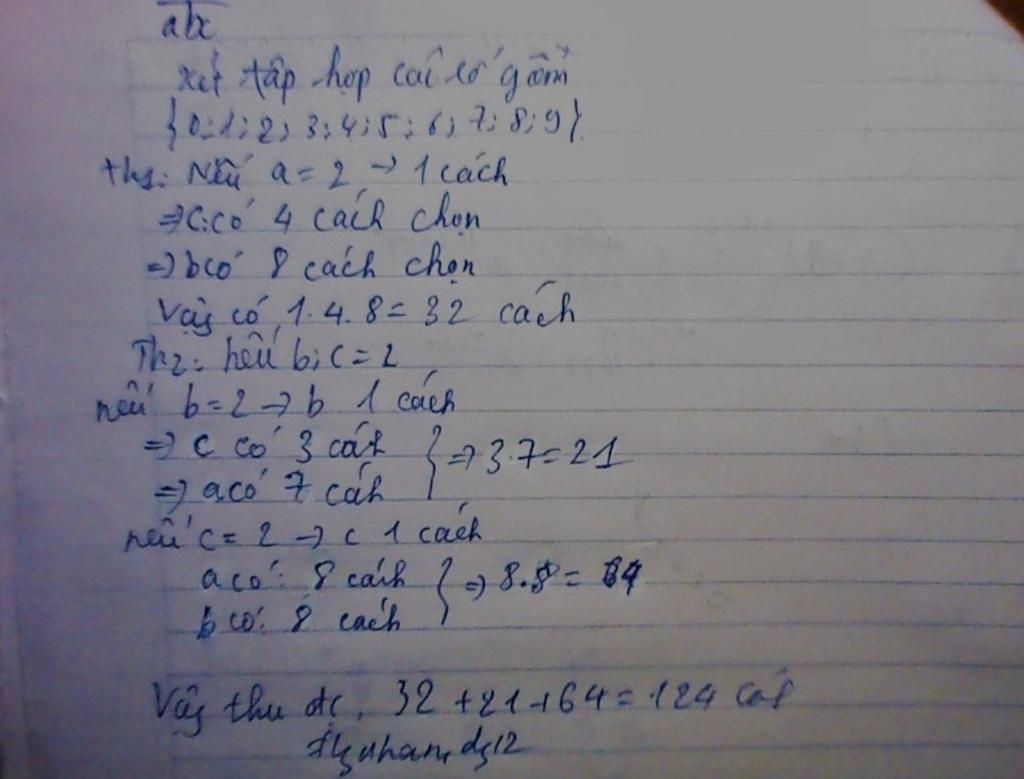 abc
xét tập hợp các số gồm
{0;1;2;3;4;5;6;7;8;9}.
th1: Nếu a = 2 → 1 cách
⇒ c: có 4 cách chọn
⇒ b có 8 cách chọn
Vậy có 1.4.8 = 32 cách
Th2: nếu b; c = 2
nếu b = 2 → b 1 cách
⇒ c có 3 cách
⇒ a có 7 cách } ⇒ 3.7 = 21
nếu c = 2 → c 1 cách
a có: 8 cách
b có: 8 cách } ⇒ 8.8 = 64
Vậy thu đc: 32 + 21 + 64 = 124 các